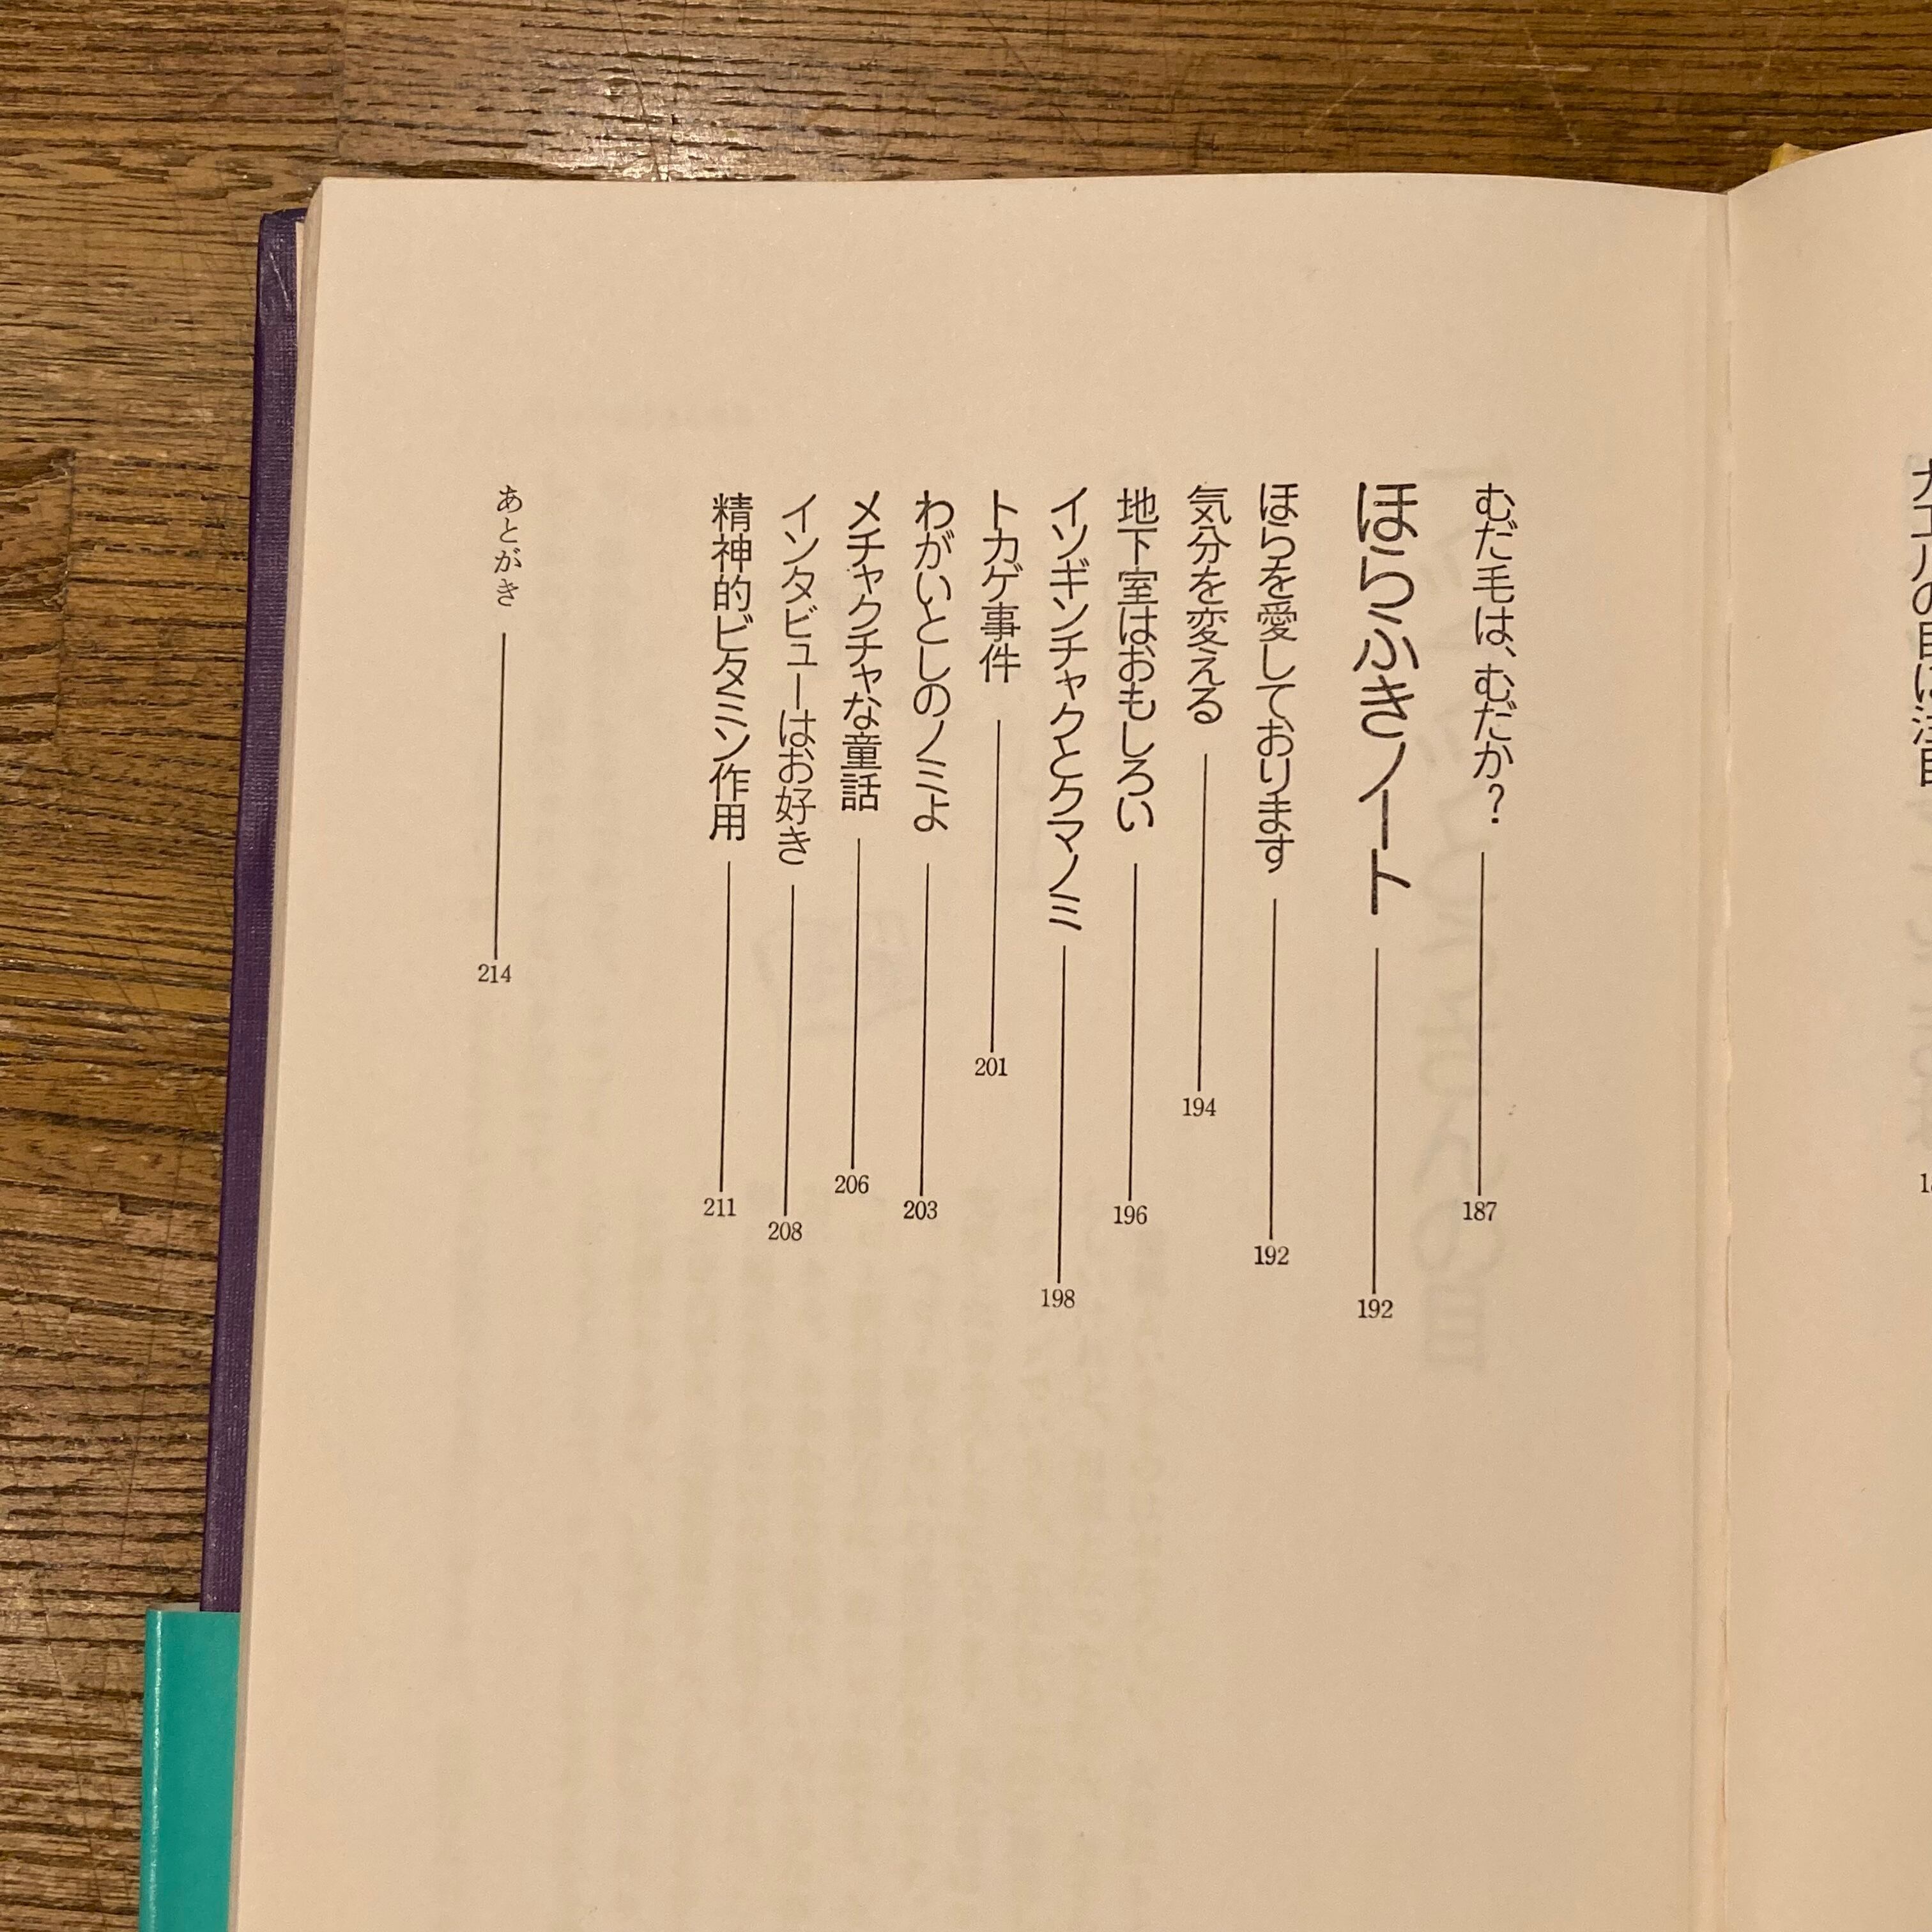 むだ毛は、むだか？ 187
ほらふきノート 192
ほらを愛しております 192
気分を変える 194
地下室はおもしろい 196
イソギンチャクとクマノミ 198
トカゲ事件 201
わがいとしのノミよ 203
メチャクチャな童話 206
インタビューはお好き 208
精神的ビタミン作用 211
あとがき 214